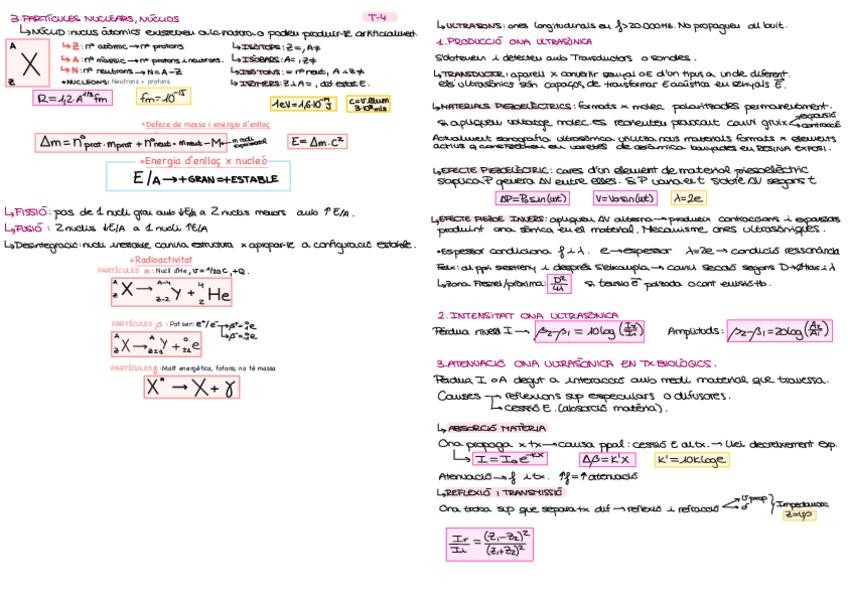 3. PARTÍCULES NUCLEARS, NÚCLIDS
T-4
↳ NÚCLID: nuclis atòmics existeixen a la natura o poden produir-se artificialment.
A
X
Z
↳ Z: nº atòmic → nº protons
↳ A: nº màssic → nº protons i neutrons.
↳ N: nº neutrons → N=A-Z
•NUCLEONS: Neutrons + protons
↳ ISÒTOPS: Z=, A≠
↳ ISÒBARS: A=, Z≠
↳ ISÒTONS: = nº neut, A i Z≠
↳ ISÒMERS: Z i A=, dif estats E.
R=1,2·A^1/3 fm
fm=10^-15
1eV=1,6·10^-19 J
•Defecte de massa i energia d'enllaç
Δm=nº prot·m prot + nº neut·m neut - M
E=Δm·c²
•Energia d'enllaç x nucleó
E/A → + GRAN = + ESTABLE
↳ FISSIÓ: pas de 1 nucli gran amb ↓E/A a 2 nuclis menors amb ↑E/A.
↳ FUSIÓ: 2 nuclis ↓E/A a 1 nucli ↑E/A
↳ Desintegració: nucli inestable canvia estructura x apropar-se a configuració estable.
•Radioactivitat
PARTÍCULES α: Nucli d'He, v=1/20 c, +Q.
A Z X → A-4 Z-2 Y + 4 2 He
PARTÍCULES β: Pot ser: e⁺/e⁻
A Z X → A Z±1 Y + 0 ±1 e
PARTÍCULES γ: Molt energètica, fotons: no té massa
X* → X + γ
↳ ULTRASONS: ones longitudinals amb f>20.000Hz. No propaguen al buit.
1. PRODUCCIÓ ONA ULTRASÒNICA
S'obtenen i detecten amb Transductors o sondes.
↳ TRANSDUCTOR: aparell x convertir senyal o E d'un tipus a una de diferent.
els ultrasònics són capaços de transformar E acústica en senyals E.
↳ MATERIALS PIEZOELÈCTRICS: formats x molec polaritzades permanentment.
Si apliquem voltatge molec es reorienten provocant canvi gruix
expansió
contracció
Actualment sonografia ultrasònica utilitza nous materials formats x elements
actius q consisteixen en varetes de ceràmica banyades en RESINA EXPOSI.
↳ EFECTE PIEZOELÈCTRIC: cares d'un element de material piezoelèctric
s'aplica P genera ΔV entre elles. Si P varia en t sobre ΔV segons t
ΔP=P₀ sin(ωt)
V=V₀ sin(ωt)
λ=2e
↳ EFECTE PIEZO INVERS: apliquem ΔV alterna → produeix contraccions i expansions
produint ona sònica en el material. Mecanisme ones ultrasòniques.
•Espessor condiciona f i λ. e → espessor λ=2e → condició ressonància
Feix: al ppi s'estreny i després s'eixampla → canvi secció segons D → Øfeix i λ
↳ Zona Fresnel/pròxima: D²/4λ
2. INTENSITAT ONA ULTRASÒNICA
Pèrdua nivell I → β₂-β₁=10log(I₂/I₁)
Amplituds: β₂-β₁=20log(A₂/A₁)
3. ATENUACIÓ ONA ULTRASÒNICA EN TX BIOLÒGICS.
Pèrdua I o A degut a interacció amb medi material que travessa.
Causes → reflexions sup especulars o difusores.
↳ cessió E. (absorció matèria).
↳ ABSORCIÓ MATÈRIA
Ona propaga x tx → causa ppal: cessió E al tx. → Llei decreixement exp.
↳ I=I₀e^-kx
Δβ=K'x
K'=10Kloge
Atenuació → f i tx. ↑f=↑atenuació
↳ REFLEXIÓ I TRANSMISSIÓ
Ona troba sup que separa tx dif → reflexió i refracció
v prop
Impedància
Ir/Ii = (Z₁-Z₂)²/(Z₁+Z₂)²